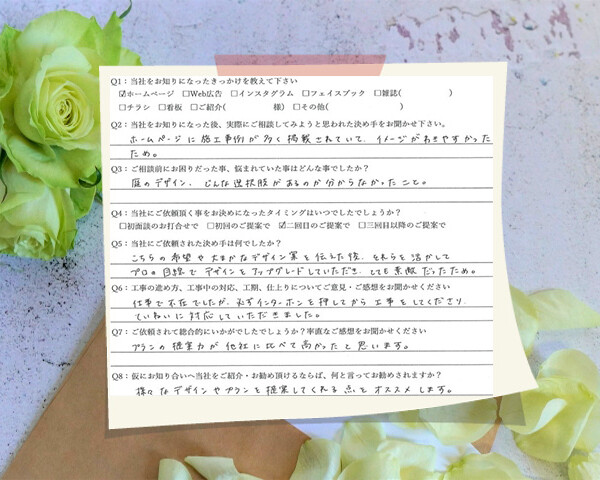 Q1：当社をお知りになったきっかけを教えて下さい
☑ホームページ □Web広告 □インスタグラム □フェイスブック □雑誌( )
□チラシ □看板 □ご紹介( 様) □その他( )
Q2：当社をお知りになった後、実際にご相談してみようと思われた決め手をお聞かせ下さい。
ホームページに施工事例が多く掲載されていて、イメージがわきやすかった
ため。
Q3：ご相談前にお困りだった事、悩まれていた事はどんな事でしたか？
庭のデザイン、どんな選択肢があるのか分からなかったこと。
Q4：当社にご依頼頂く事をお決めになったタイミングはいつでしたでしょうか？
□初面談のお打合せで □初回のご提案で ☑二回目のご提案で □三回目以降のご提案で
Q5：当社にご依頼された決め手は何でしたか？
こちらの希望や大まかなデザイン案を伝えた後、それらを活かして
プロの目線でデザインをアップグレードしていただき、とても素敵だったため。
Q6：工事の進め方、工事中の対応、工期、仕上りについてご意見・ご感想をお聞かせください
仕事で不在でしたが、必ずインターホンを押してから工事をしてくださり、
ていねいに対応していただきました。
Q7：ご依頼されて総合的にいかがでしたでしょうか？率直なご感想をお聞かせください
プランの提案力が他社に比べて高かったと思います。
Q8：仮にお知り合いへ当社をご紹介・お勧め頂けるならば、何と言ってお勧めされますか？
様々なデザインやプランを提案してくれる点をオススメします。